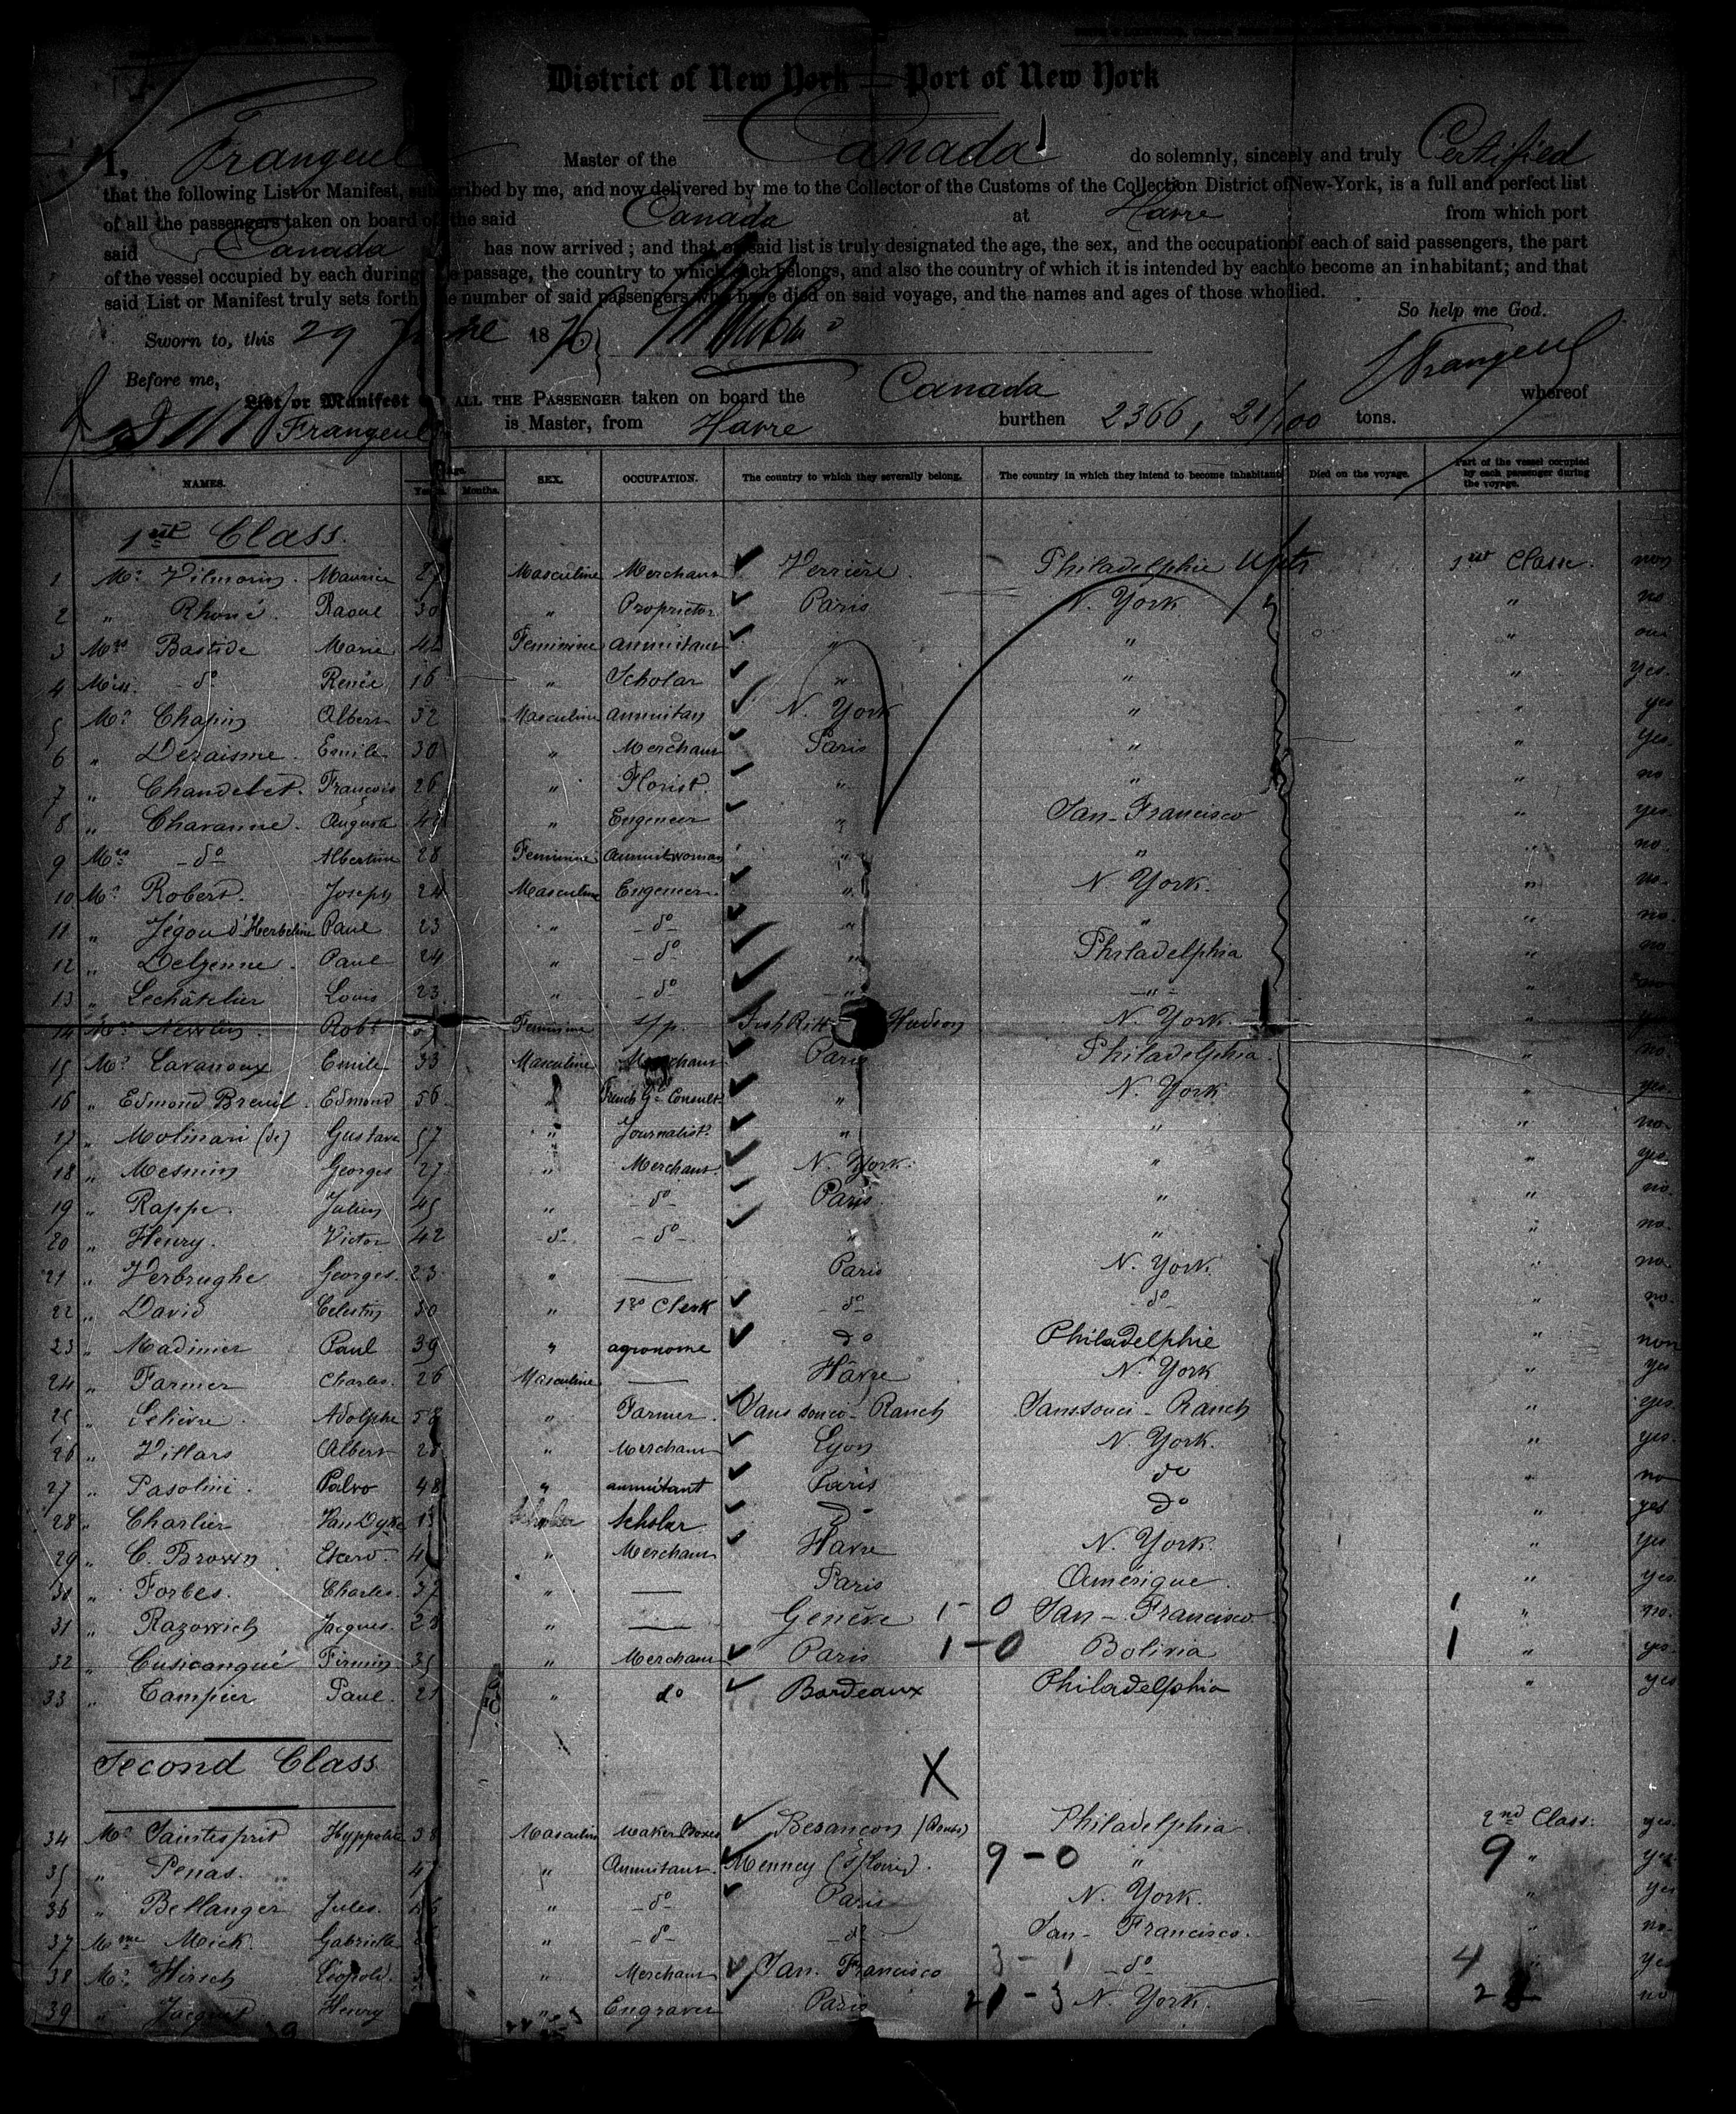 District of New York — Port of New York
I, Frangeul Master of the Canada do solemnly, sincerely and truly Certified
that the following List or Manifest, subscribed by me, and now delivered by me to the Collector of the Customs of the Collection District of New-York, is a full and perfect list
of all the passengers taken on board of the said Canada at Havre from which port
said Canada has now arrived; and that on said list is truly designated the age, the sex, and the occupation of each of said passengers, the part
of the vessel occupied by each during the passage, the country to which each belongs, and also the country of which it is intended by each to become an inhabitant; and that
said List or Manifest truly sets forth the number of said passengers who have died on said voyage, and the names and ages of those who died.
So help me God.
Sworn to, this 29 June 1876
Frangeul
Before me,
List or Manifest of ALL THE PASSENGER taken on board the Canada whereof
Frangeul is Master, from Havre burthen 2366, 21/100 tons.
NAMES. Age. Years. Months. SEX. OCCUPATION. The country to which they severally belong. The country in which they intend to become inhabitants Died on the voyage. Part of the vessel occupied by each passenger during the voyage.
1st Class.
1 Mr Vilmorin Maurice 27 Masculine Merchant Verrière Philadelphie 1st Class. non
2 " Rhoné Raoul 30 " Proprietor Paris N. York " no
3 Mrs Bastide Marie 42 Feminine annuitant " " "
4 Miss do Renée 16 " Scholar " " " Yes.
5 Mr Chapin Albert 32 Masculine annuitan N. York " " yes
6 " Deraisme Emile 30 " Merchant Paris " " Yes.
7 " Chandelet. François 26 " Florist. " " " no
8 " Chavanne. Auguste " Engeneer " San-Francisco " yes
9 Mrs do Albertine 28 Feminine annuitwoman " " " no.
10 Mr Robert. Joseph 24 Masculine Engeneer " N. York. " no.
11 " Jégou d'Herbeline Paul 23 " do " " " no.
12 " Delzenne. Paul 24 " do " Philadelphia " no
13 " Lechâtelier Louis 23 " do " " "
14 Newlin Robt Feminine Hudson N. York. "
15 Mr Lavanoux Emile 33 Masculine Merchant Paris Philadelphia. " no
16 " Edmond Breuil. Edmond 56 " French Gl Consult " N. York " yes
17 " Molinari (de) Gustave 57 " Journalist. " " " no
18 " Mesmin Georges 27 " Merchant. N. York. " " yes
19 " Rappe. Julien 45 " do Paris. " " no.
20 " Henry. Victor 42 do do " " " no
21 " Verbrughe Georges. 23 " — Paris N. York. " no
22 " David Celestin 30 " Clerk do do " no.
23 " Madinier Paul 39 " agronome do Philadelphie " non
24 " Farmer Charles. 26 Masculine — Hâvre N. York " yes
25 " Lelièvre. Adolphe 58 " Farmer. Sans souci- Ranch Sanssouci- Ranch " yes
26 " Villars Albert " Merchant Lyon N. York. " yes.
27 " Pasolini. 48 " annuitant Paris do " no
28 " Charlier VanDyke Scholar do do " yes
29 " C. Brown " Merchant Havre N. York. " Yes
30 " Forbes. Charles. 37 " — Paris Amérique. " yes.
31 " Razowich Jacques. " — Genève 1-0 San-Francisco 1 " no.
32 " Cusicanqué Firmin 35 " Merchant Paris 1-0 Bolivia 1 " yes
33 " Campier Paul. 21 " do Bordeaux Philadelphia " yes
Second Class
X
34 Mr Saintesprit Hyppolite 38 Masculin Maker Boxes Besançon (Doubs) Philadelphia. 2nd Class. yes.
35 " Penas. 47 " Annuitant. 9-0 " 9 " yes
36 " Bellanger Jules. 46 " do Paris N. York. " yes
37 Mme Mick. Gabrielle " do do San-Francisco. " no.
38 Mr Hirsch Léopold. " Merchant San. Francisco 3-1 do 4 " yes
39 " Jacquot Henry " Engraver Paris 21-3 N York. 2 no